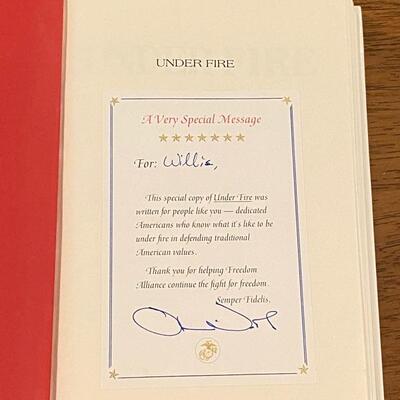 UNDER FIRE
A Very Special Message
For: Willie,
This special copy of Under Fire was
written for people like you — dedicated
Americans who know what it's like to be
under fire in defending traditional
American values.
Thank you for helping Freedom
Alliance continue the fight for freedom.
Semper Fidelis,